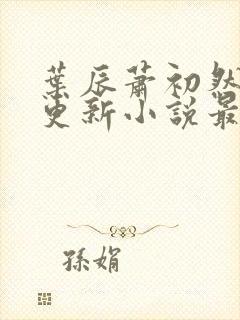 葉辰蕭初然
更新小說最
孫娟